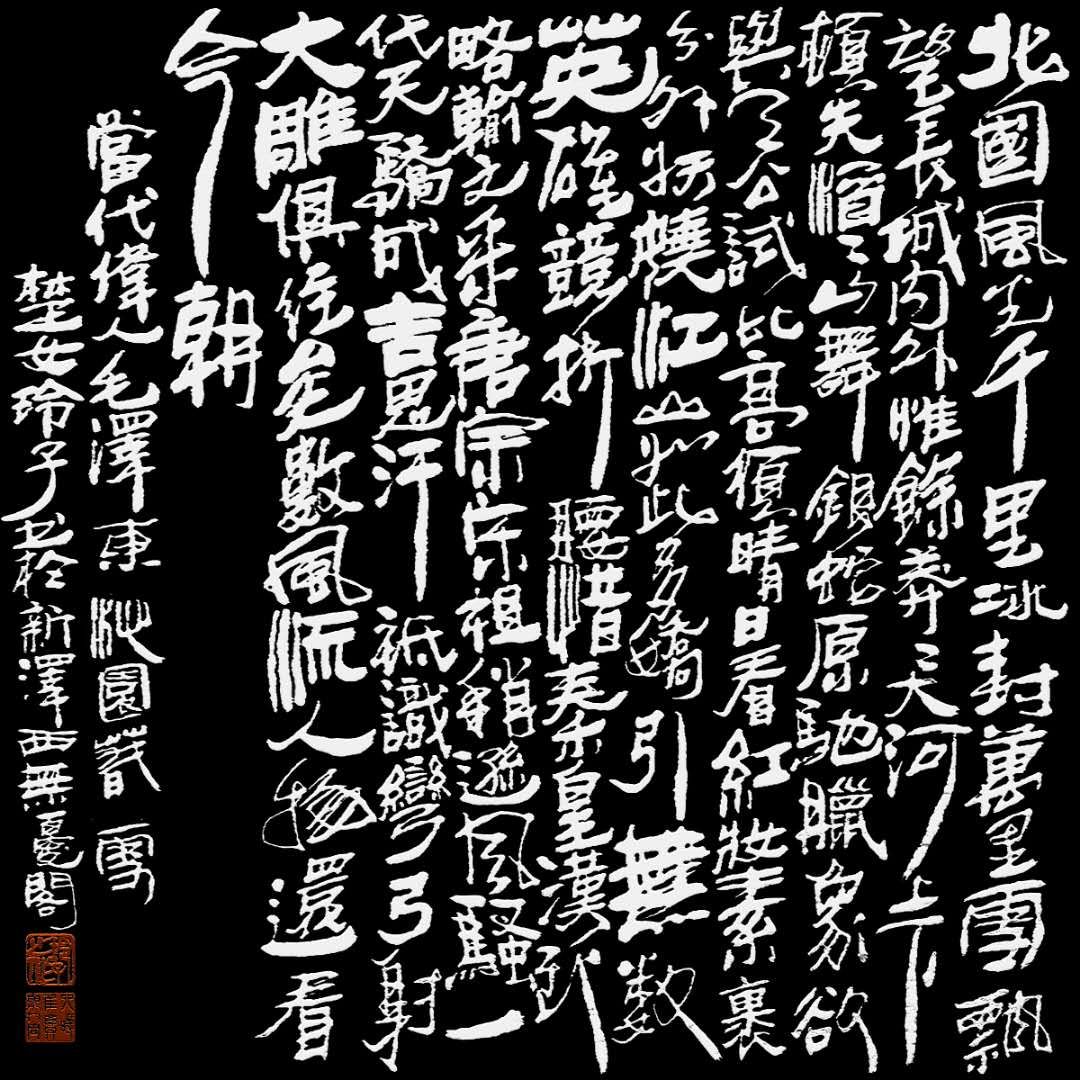 北國風光千里冰封萬里雪飄
望長城内外惟餘莽〻大河上下
頓失滔〻山舞銀蛇原馳臘象欲
與天公試比高須晴日看紅妝素裹
分外妖嬈江山如此多嬌引無数
英雄競折腰惜秦皇漢武
略輸文采唐宗宋祖稍遜风騷一
代天驕成吉思汗祇識彎弓射
大雕俱往矣數風流人物還看
今朝
當代偉人毛澤東沁園春雪
楚女玲子书於新澤西無憂閣